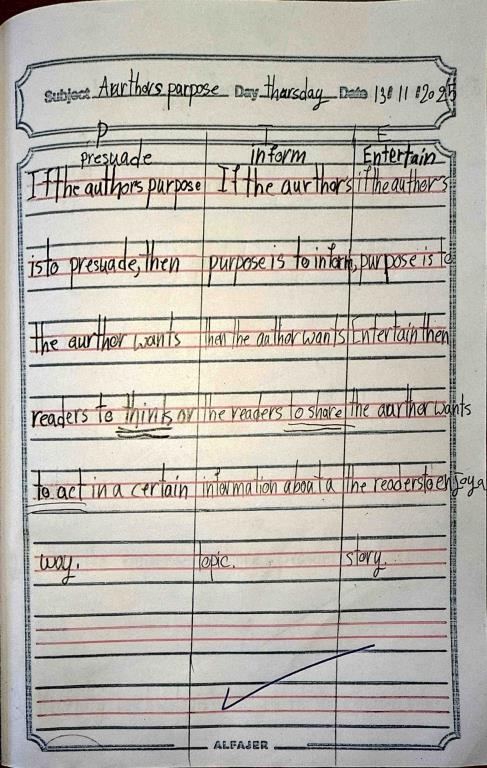 Subject Aurthors parpose Day thursday Date 13 11 2025
P I E
presuade inform Entertain
If the authors purpose If the aurthor's if the author's
is to presuade, then purpose is to inform, purpose is to
the aurthor wants then the author wants Entertain then
readers to think or the readers to share the aurthor wants
to act in a certain information about a the readers to enjoy a
way. topic. story.
ALFAJER